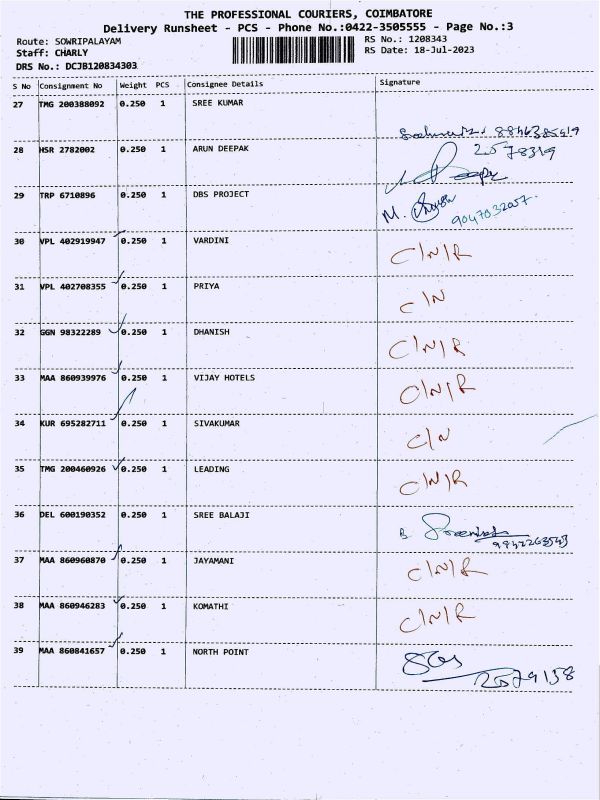 THE PROFESSIONAL COURIERS, COIMBATORE
Delivery Runsheet - PCS - Phone No.:0422-3505555 - Page No.:3
Route: SOWRIPALAYAM
RS No.: 1208343
Staff: CHARLY
RS Date: 18-Jul-2023
DRS No.: DCJB120834303
S No Consignment No Weight PCS Consignee Details Signature
27 TMG 200388092 0.250 1 SREE KUMAR
28 HSR 2782002 0.250 1 ARUN DEEPAK 2578319
29 TRP 6710896 0.250 1 DBS PROJECT M. 9047032057.
30 VPL 402919947 0.250 1 VARDINI C/N/R
31 VPL 402708355 0.250 1 PRIYA C/N
32 GGN 98322289 0.250 1 DHANISH C/N/R
33 MAA 860939976 0.250 1 VIJAY HOTELS C/N/R
34 KUR 695282711 0.250 1 SIVAKUMAR C/N
35 TMG 200460926 0.250 1 LEADING C/N/R
36 DEL 600190352 0.250 1 SREE BALAJI
9842263543
37 MAA 860960870 0.250 1 JAYAMANI C/N/R
38 MAA 860946283 0.250 1 KOMATHI C/N/R
39 MAA 860841657 0.250 1 NORTH POINT
2579158